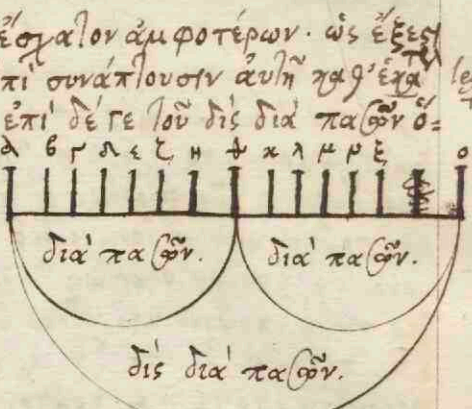 ἔσχατον ἀμφοτέρων. ὡς ἔξεστι
πὶ συνάπτουσιν αὐτῇ καθ' ἑκα
ἐπὶ δέ γε τοῦ δὶς διὰ πασῶν ὅ=
α β γ δ ε ζ η θ κ λ μ ν ξ ο
διὰ πασῶν. διὰ πασῶν.
δὶς διὰ πασῶν.